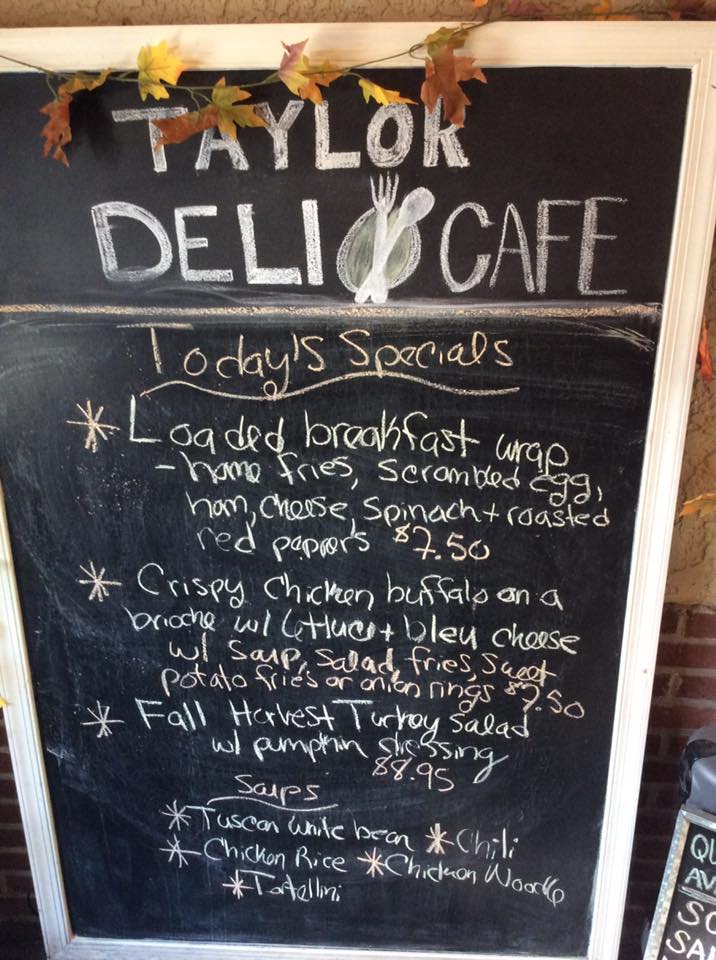 TAYLOR
DELI CAFE
Today's Specials
* Loaded breakfast wrap
- home fries, scrambled egg,
ham, cheese, spinach + roasted
red peppers $7.50
* Crispy Chicken buffalo on a
brioche w/ lettuce + bleu cheese
w/ Soup, Salad, fries, Sweet
potato fries or onion rings $9.50
* Fall Harvest Turkey Salad
w/ pumpkin dressing
$8.95
Soups
* Tuscan white bean * Chili
* Chicken Rice * Chicken Noodle
* Tortellini
QU
AV
SO
SA